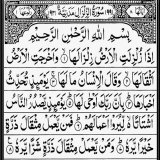 سُوْرَةُ الزِّلْزَالِ مَدَنِيَّةٌ
بِسْمِ اللهِ الرَّحْمٰنِ الرَّحِيْمِ
اِذَا زُلْزِلَتِ الْاَرْضُ زِلْزَالَهَا وَاَخْرَجَتِ الْاَرْضُ
اَثْقَالَهَا وَقَالَ الْاِنْسَانُ مَا لَهَا يَوْمَئِذٍ تُحَدِّثُ
اَخْبَارَهَا بِاَنَّ رَبَّكَ اَوْحٰى لَهَا يَوْمَئِذٍ يَّصْدُرُ النَّاسُ
اَشْتَاتًا لِّيُرَوْا اَعْمَالَهُمْ فَمَنْ يَّعْمَلْ مِثْقَالَ ذَرَّةٍ
خَيْرًا يَّرَهٗ وَمَنْ يَّعْمَلْ مِثْقَالَ ذَرَّةٍ